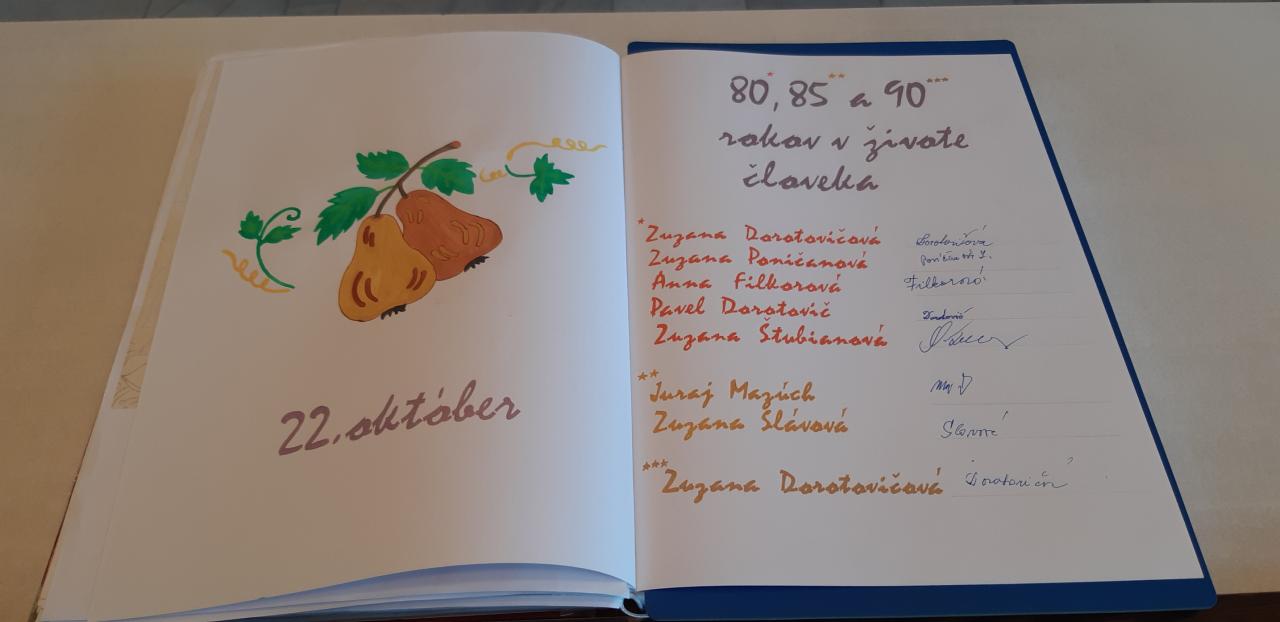 22. október
80*, 85** a 90***
rokov v živote
človeka
* Zuzana Dorotovičová Dorotovičová
Zuzana Poničanová
Anna Filkorová Filkorová
Pavel Dorotovič Dorotovič
Zuzana Štubianová
** Juraj Mazúch
Zuzana Slávová Slávová
*** Zuzana Dorotovičová Dorotovičová